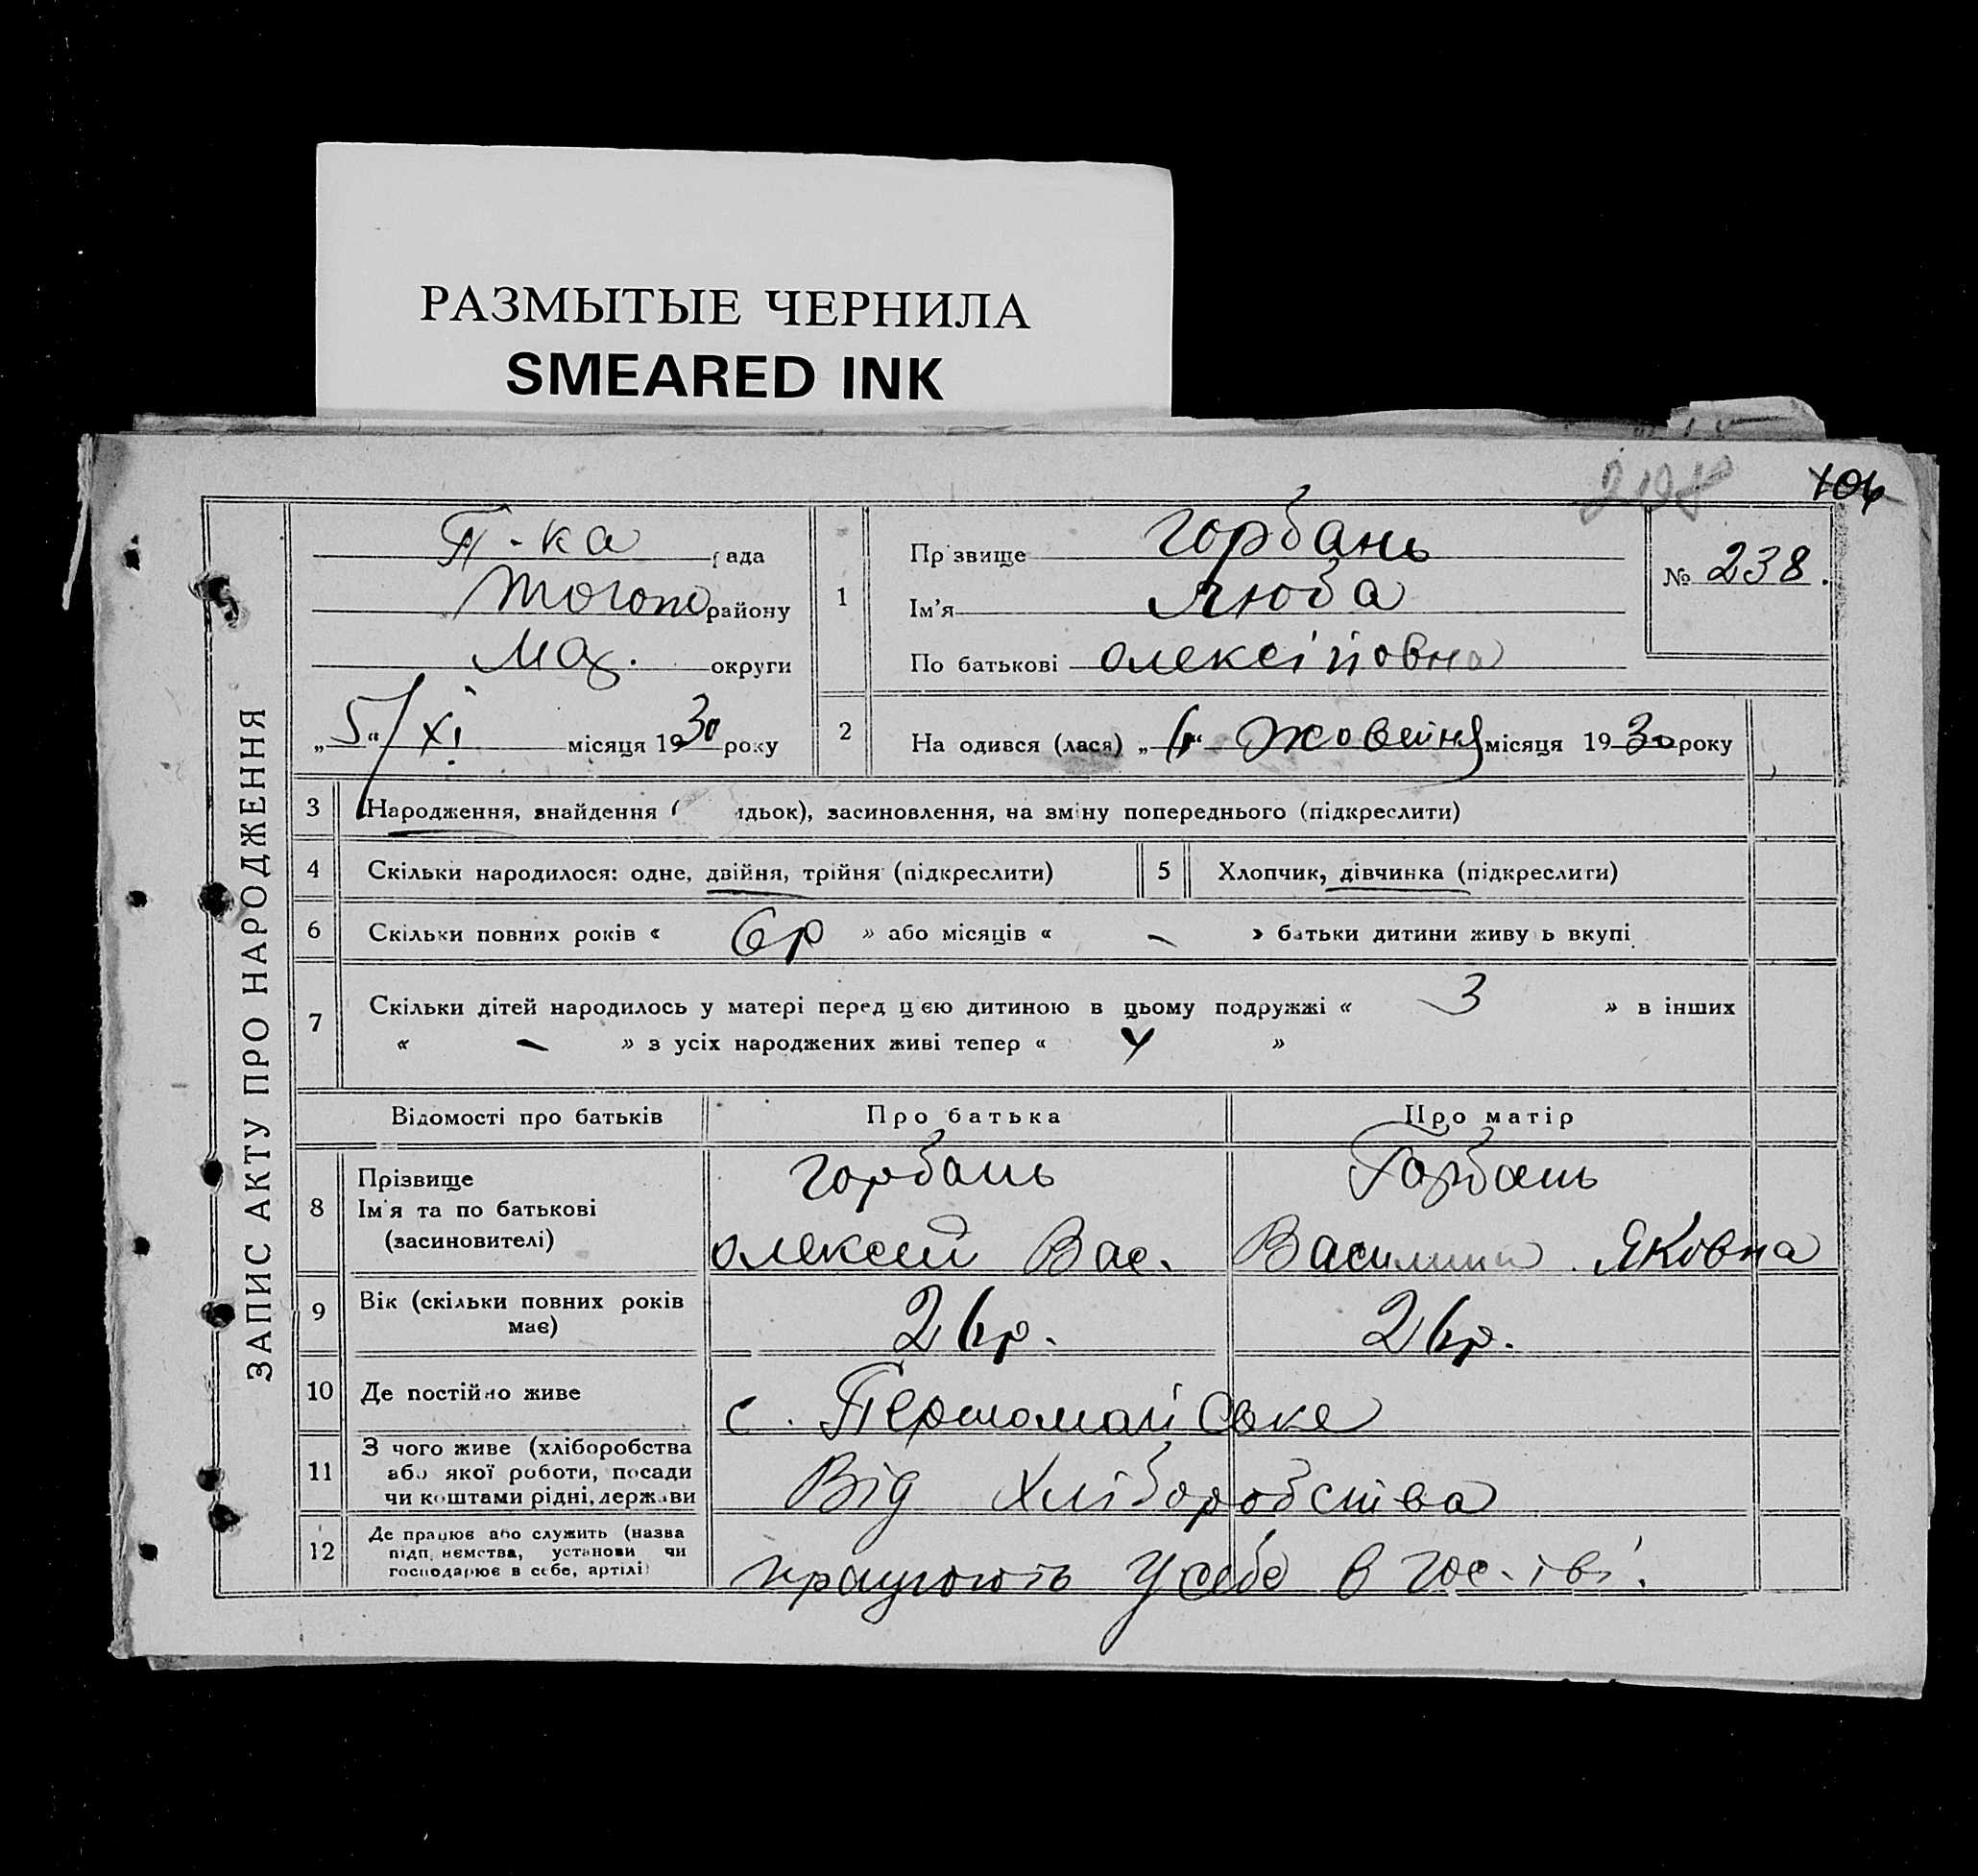 РАЗМЫТЫЕ ЧЕРНИЛА
SMEARED INK
106
ЗАПИС АКТУ ПРО НАРОДЖЕННЯ
П-ка рада
району
округи
„5“ XI місяця 1930 року
1 Прізвище Горбань
Ім'я Люба
По батькові Олексіївна
№ 238.
2 На одився (лася) „ “ Жовтня місяця 1930 року
3 Народження, знайдення ( ідьок), засиновлення, на зміну попереднього (підкреслити)
4 Скільки народилося: одне, двійня, трійня (підкреслити)
5 Хлопчик, дівчинка (підкреслити)
6 Скільки повних років « 6р » або місяців « – » батьки дитини живу ь вкупі
7 Скільки дітей народилось у матері перед цією дитиною в цьому подружжі « 3 » в інших
« – » з усіх народжених живі тепер « 4 »
Відомості про батьків Про батька Про матір
8 Прізвище
Ім'я та по батькові
(засиновителі)
Горбань
Олексій Вас.
Горбань
Василина Яковна
9 Вік (скільки повних років
має)
26р. 26р.
10 Де постійно живе с. Першомайське
11 З чого живе (хліборобства
або якої роботи, посади
чи коштами рідні, держави
Від хліборобства
12 Де працює або служить (назва
підп. иємства, установи чи
господарює в себе, артілі)
працюють у себе в гос-тві.